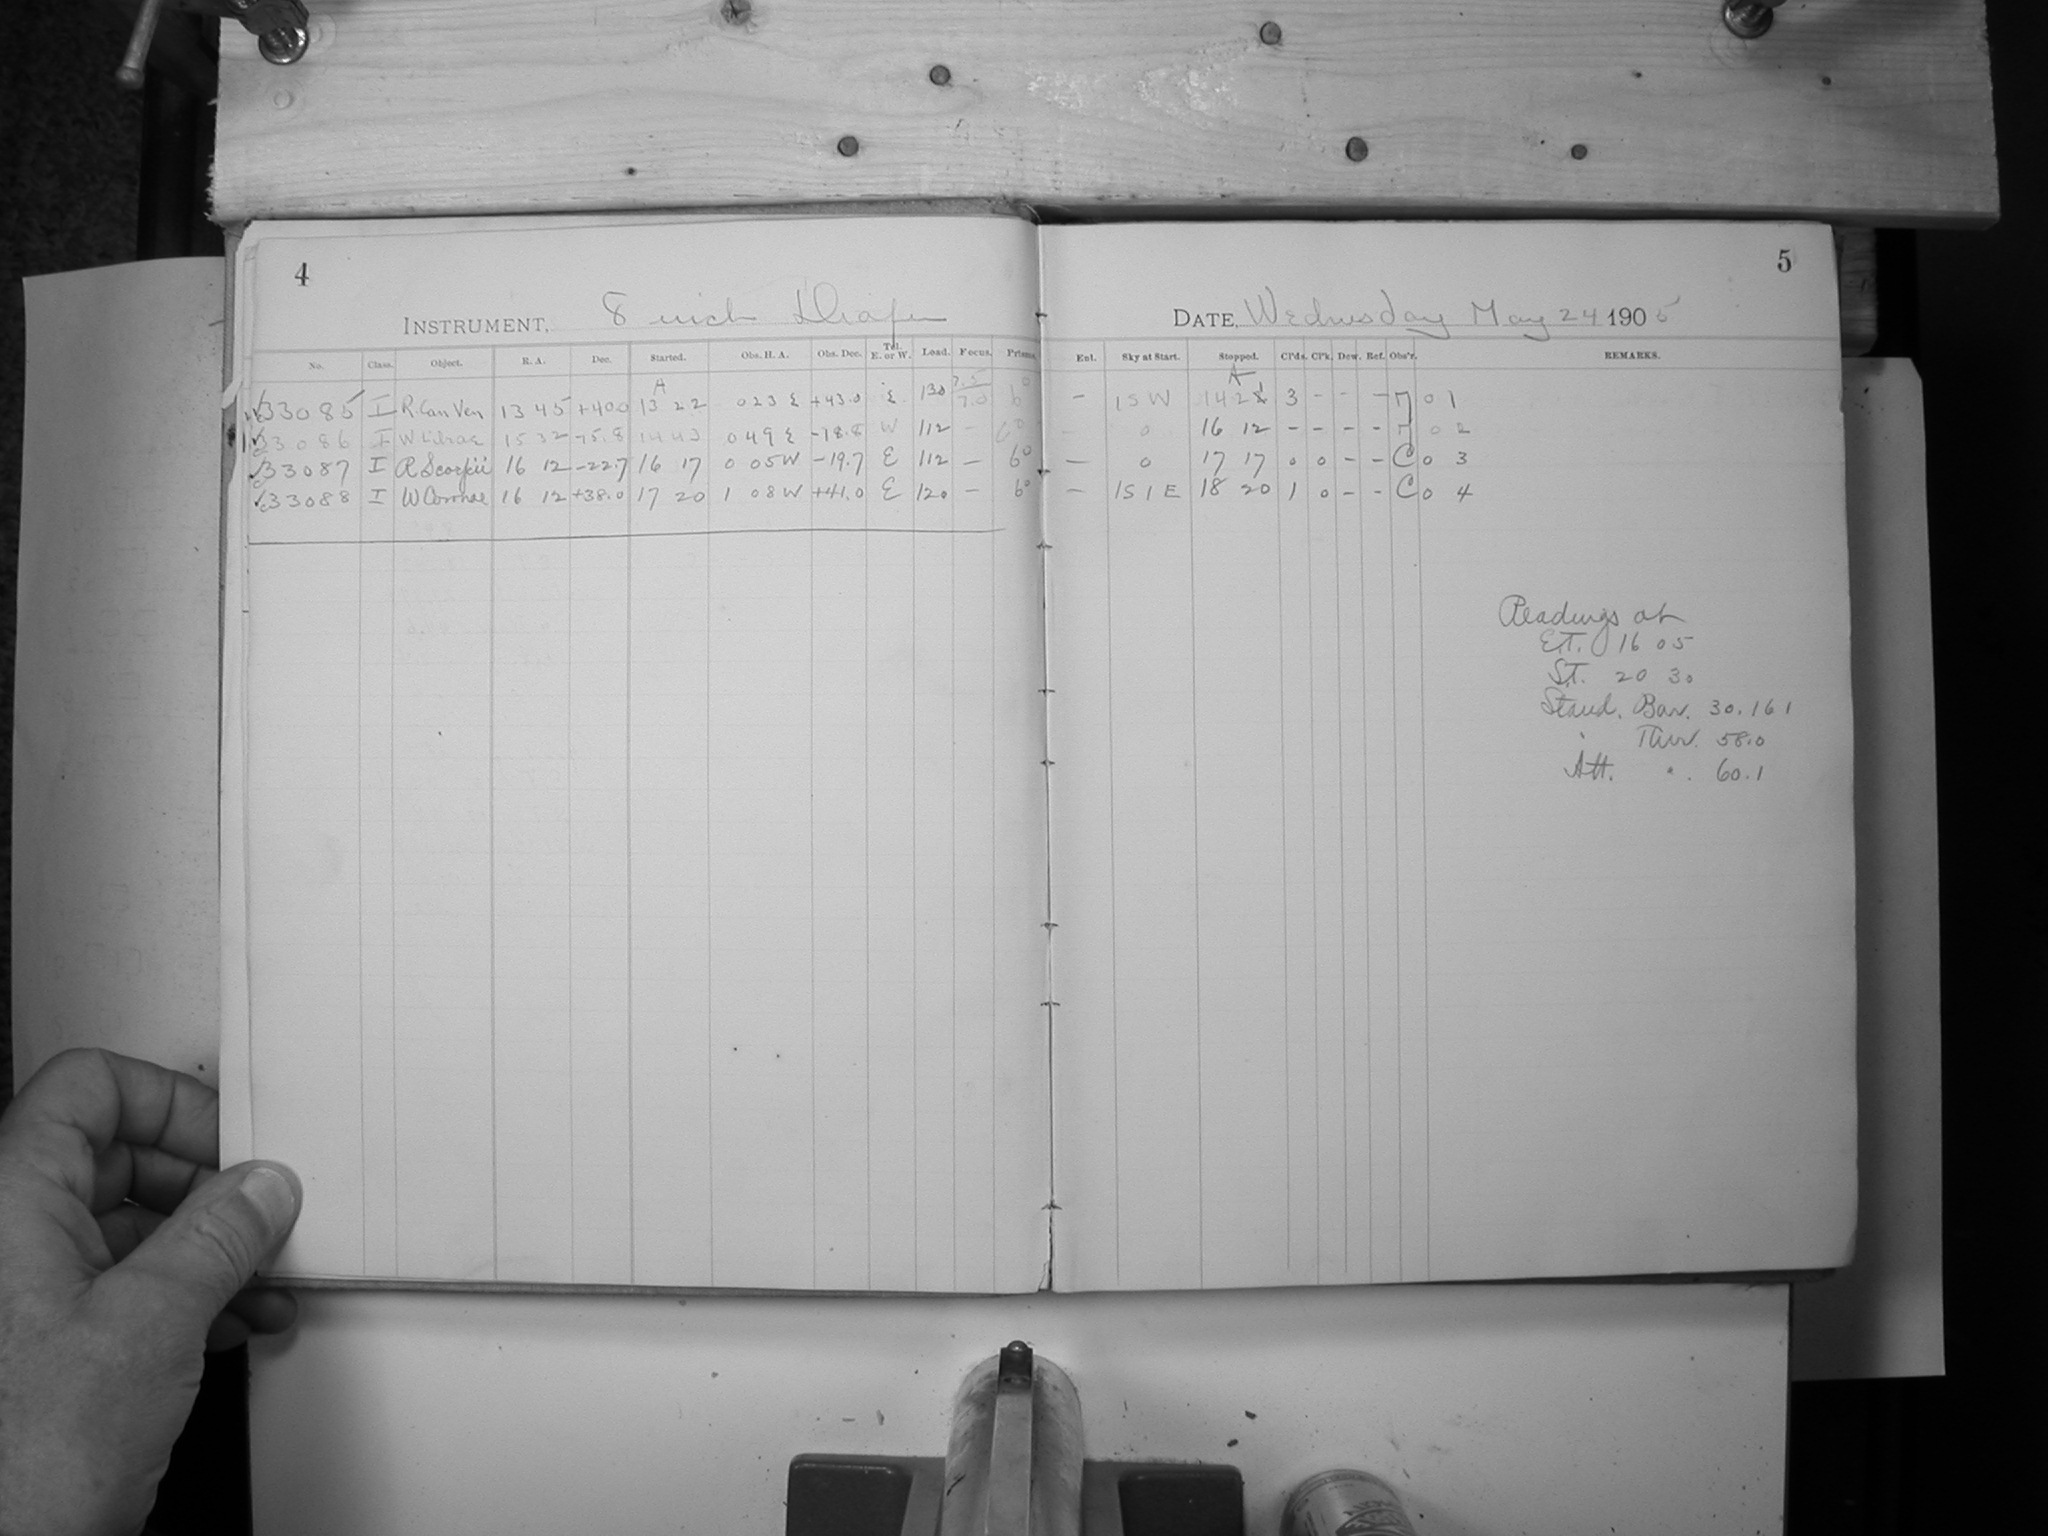 4
INSTRUMENT, 8 inch Draper
No. Class. Object. R. A. Dec. Started. Obs. H. A. Obs. Dec. Tel. E. or W. Load. Focus. Prisms.
33085 I R. Can Ven 13 45 +40.0 A 13 22 0 23 E +43.0 E 130 7.5 7.0 6°
33086 I W Librae 15 32 -15.8 14 43 0 49 E -18.8 W 112 - 6°
33087 I R Scorpii 16 12 -22.7 16 17 0 05 W -19.7 E 112 - 6°
33088 I W Coronae 16 12 +38.0 17 20 1 08 W +41.0 E 120 - 6°
5
DATE, Wednesday May 24 1905
Ent. Sky at Start. Stopped. Cl'ds. Cl'k. Dew. Ref. Obs'r. REMARKS.
- 1 S W A 14 2 3 - - - 0 1
- 0 16 12 - - - - 0 2
- 0 17 17 0 0 - - C 0 3
- 1 S 1 E 18 20 1 0 - - C 0 4
Readings at
E.T. 16 05
S.T. 20 30
Stand. Bar. 30.161
" Ther. 58.0
Att. " 60.1